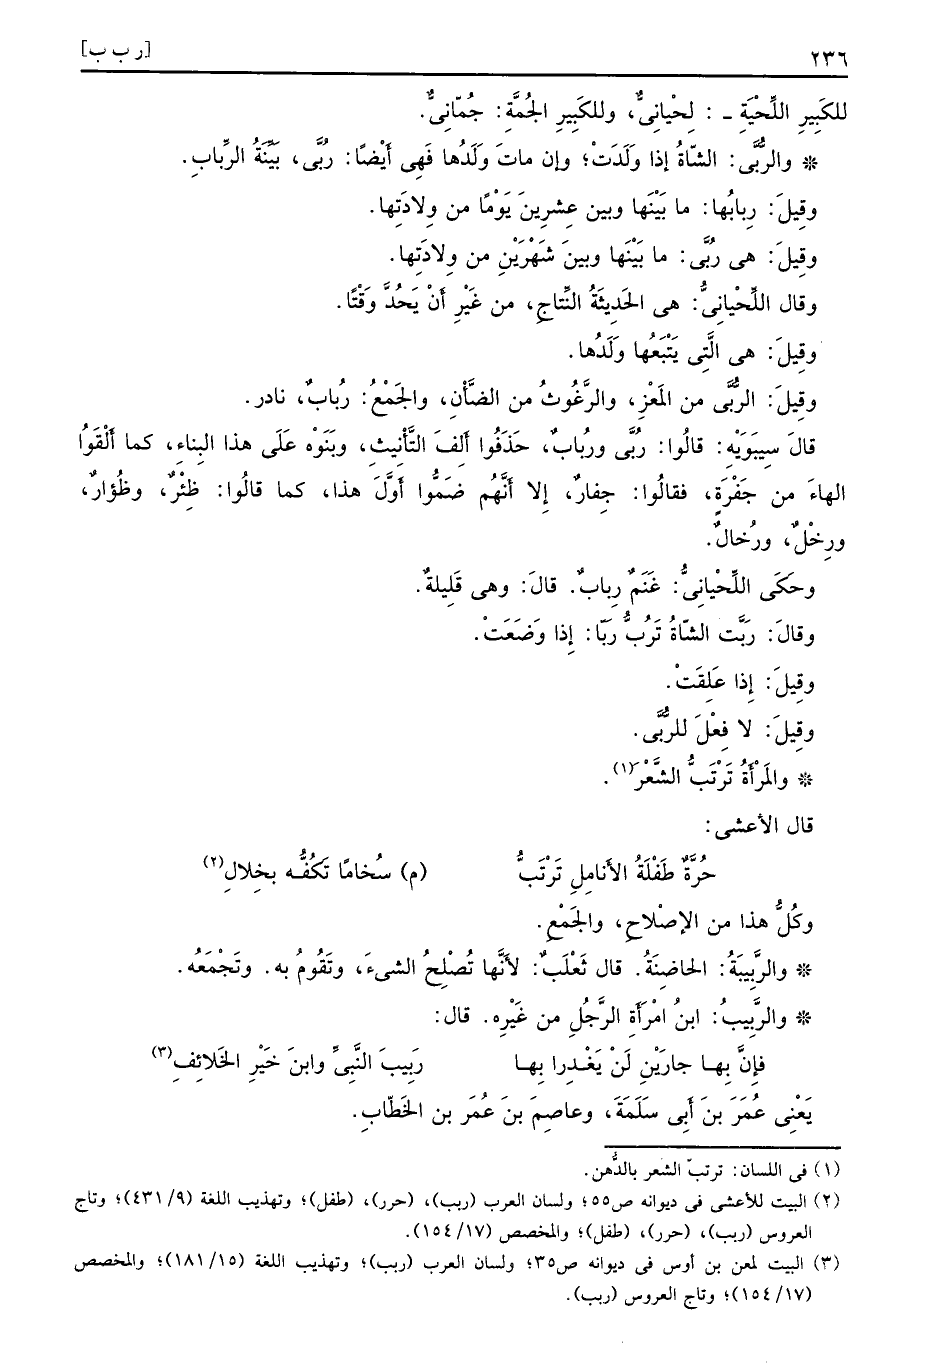 ٢٣٦
[ر ب ب]
للكَبِيرِ اللِّحْيَةِ ـ : لِحْيانِىٌّ، وللكَبِيرِ الجُمَّةِ: جُمّانِىٌّ.
* والرُّبَّى: الشّاةُ إذا وَلَدَتْ؛ وإن ماتَ وَلَدُها فَهِى أيْضًا: رُبَّى، بَيِّنَةُ الرِّبابِ.
وقِيلَ: رِبابُها: ما بَيْنَها وبين عِشرِينَ يَوْمًا من وِلادَتِها.
وقِيلَ: هى رُبَّى: ما بَيْنَها وبينَ شَهْرَيْنِ من وِلادَتِها.
وقال اللِّحْيانِىُّ: هى الحَدِيثَةُ النِّتاجِ، من غَيْرِ أنْ يَحُدَّ وَقْتًا.
وقِيلَ: هى الَّتِى يَتْبَعُها وَلَدُها.
وقِيلَ: الرُّبَّى من المَعْزِ، والرَّغُوثُ من الضَّأْنِ، والجَمْعُ: رُبابٌ، نادر.
قالَ سِيبَوَيْهِ: قالُوا: رُبَّى ورُبابٌ، حَذَفُوا ألفَ التَّأنِيثِ، وبَنَوْه عَلَى هذا البِناءِ، كما ألْقَوُا
الهاءَ من جَفْرَةٍ، فقالُوا: جِفارٌ، إلا أنَّهُم ضَمُّوا أوَّلَ هذا، كما قالُوا: ظِئْرٌ، وظُؤارٌ،
ورِخْلٌ، ورُخالٌ.
وحَكَى اللِّحْيانِىُّ: غَنَمٌ رِبابٌ. قالَ: وهى قَلِيلةٌ.
وقالَ: رَبَّت الشّاةُ تَرُبُّ رَبّا: إذا وَضَعَتْ.
وقِيلَ: إذا عَلِقَتْ.
وقِيلَ: لا فِعْلَ للرُّبَّى.
* والمَرْأةُ تَرْتَبُّ الشَّعْرَ(١).
قال الأعشى:
حُرَّةٌ طَفْلَةُ الأنامِلِ تَرْتَبُّ (م) سُخامًا تَكُفُّه بخِلالِ(٢)
وكُلُّ هذا من الإصْلاحِ، والجَمْعِ.
* والرَّبِيبَةُ: الحاضِنَةُ. قال ثَعْلَبٌ: لأنَّها تُصْلِحُ الشىءَ، وتَقُومُ به. وتَجْمَعُه.
* والرَّبِيبُ: ابنُ امْرَأةِ الرَّجُلِ من غَيْرِه. قال:
فإنَّ بهـا جارَيْنِ لَنْ يَغْـدِرا بهـا رَبِيبَ النَّبِىِّ وابنَ خَيْرِ الخَلائِفِ(٣)
يَعْنِى عُمَرَ بنَ أبى سَلَمَةَ، وعاصِمَ بنَ عُمَرَ بن الخَطّابِ.
(١) فى اللسان: ترتبّ الشعر بالدُّهن.
(٢) البيت للأعشى فى ديوانه ص٥٥؛ ولسان العرب (ربب)، (حرر)، (طفل)؛ وتهذيب اللغة (٩/ ٤٣١)؛ وتاج
العروس (ربب)، (حرر)، (طفل)؛ والمخصص (١٧/ ١٥٤).
(٣) البيت لمعن بن أوس فى ديوانه ص٣٥؛ ولسان العرب (ربب)؛ وتهذيب اللغة (١٥/ ١٨١)؛ والمخصص
(١٧/ ١٥٤)؛ وتاج العروس (ربب).